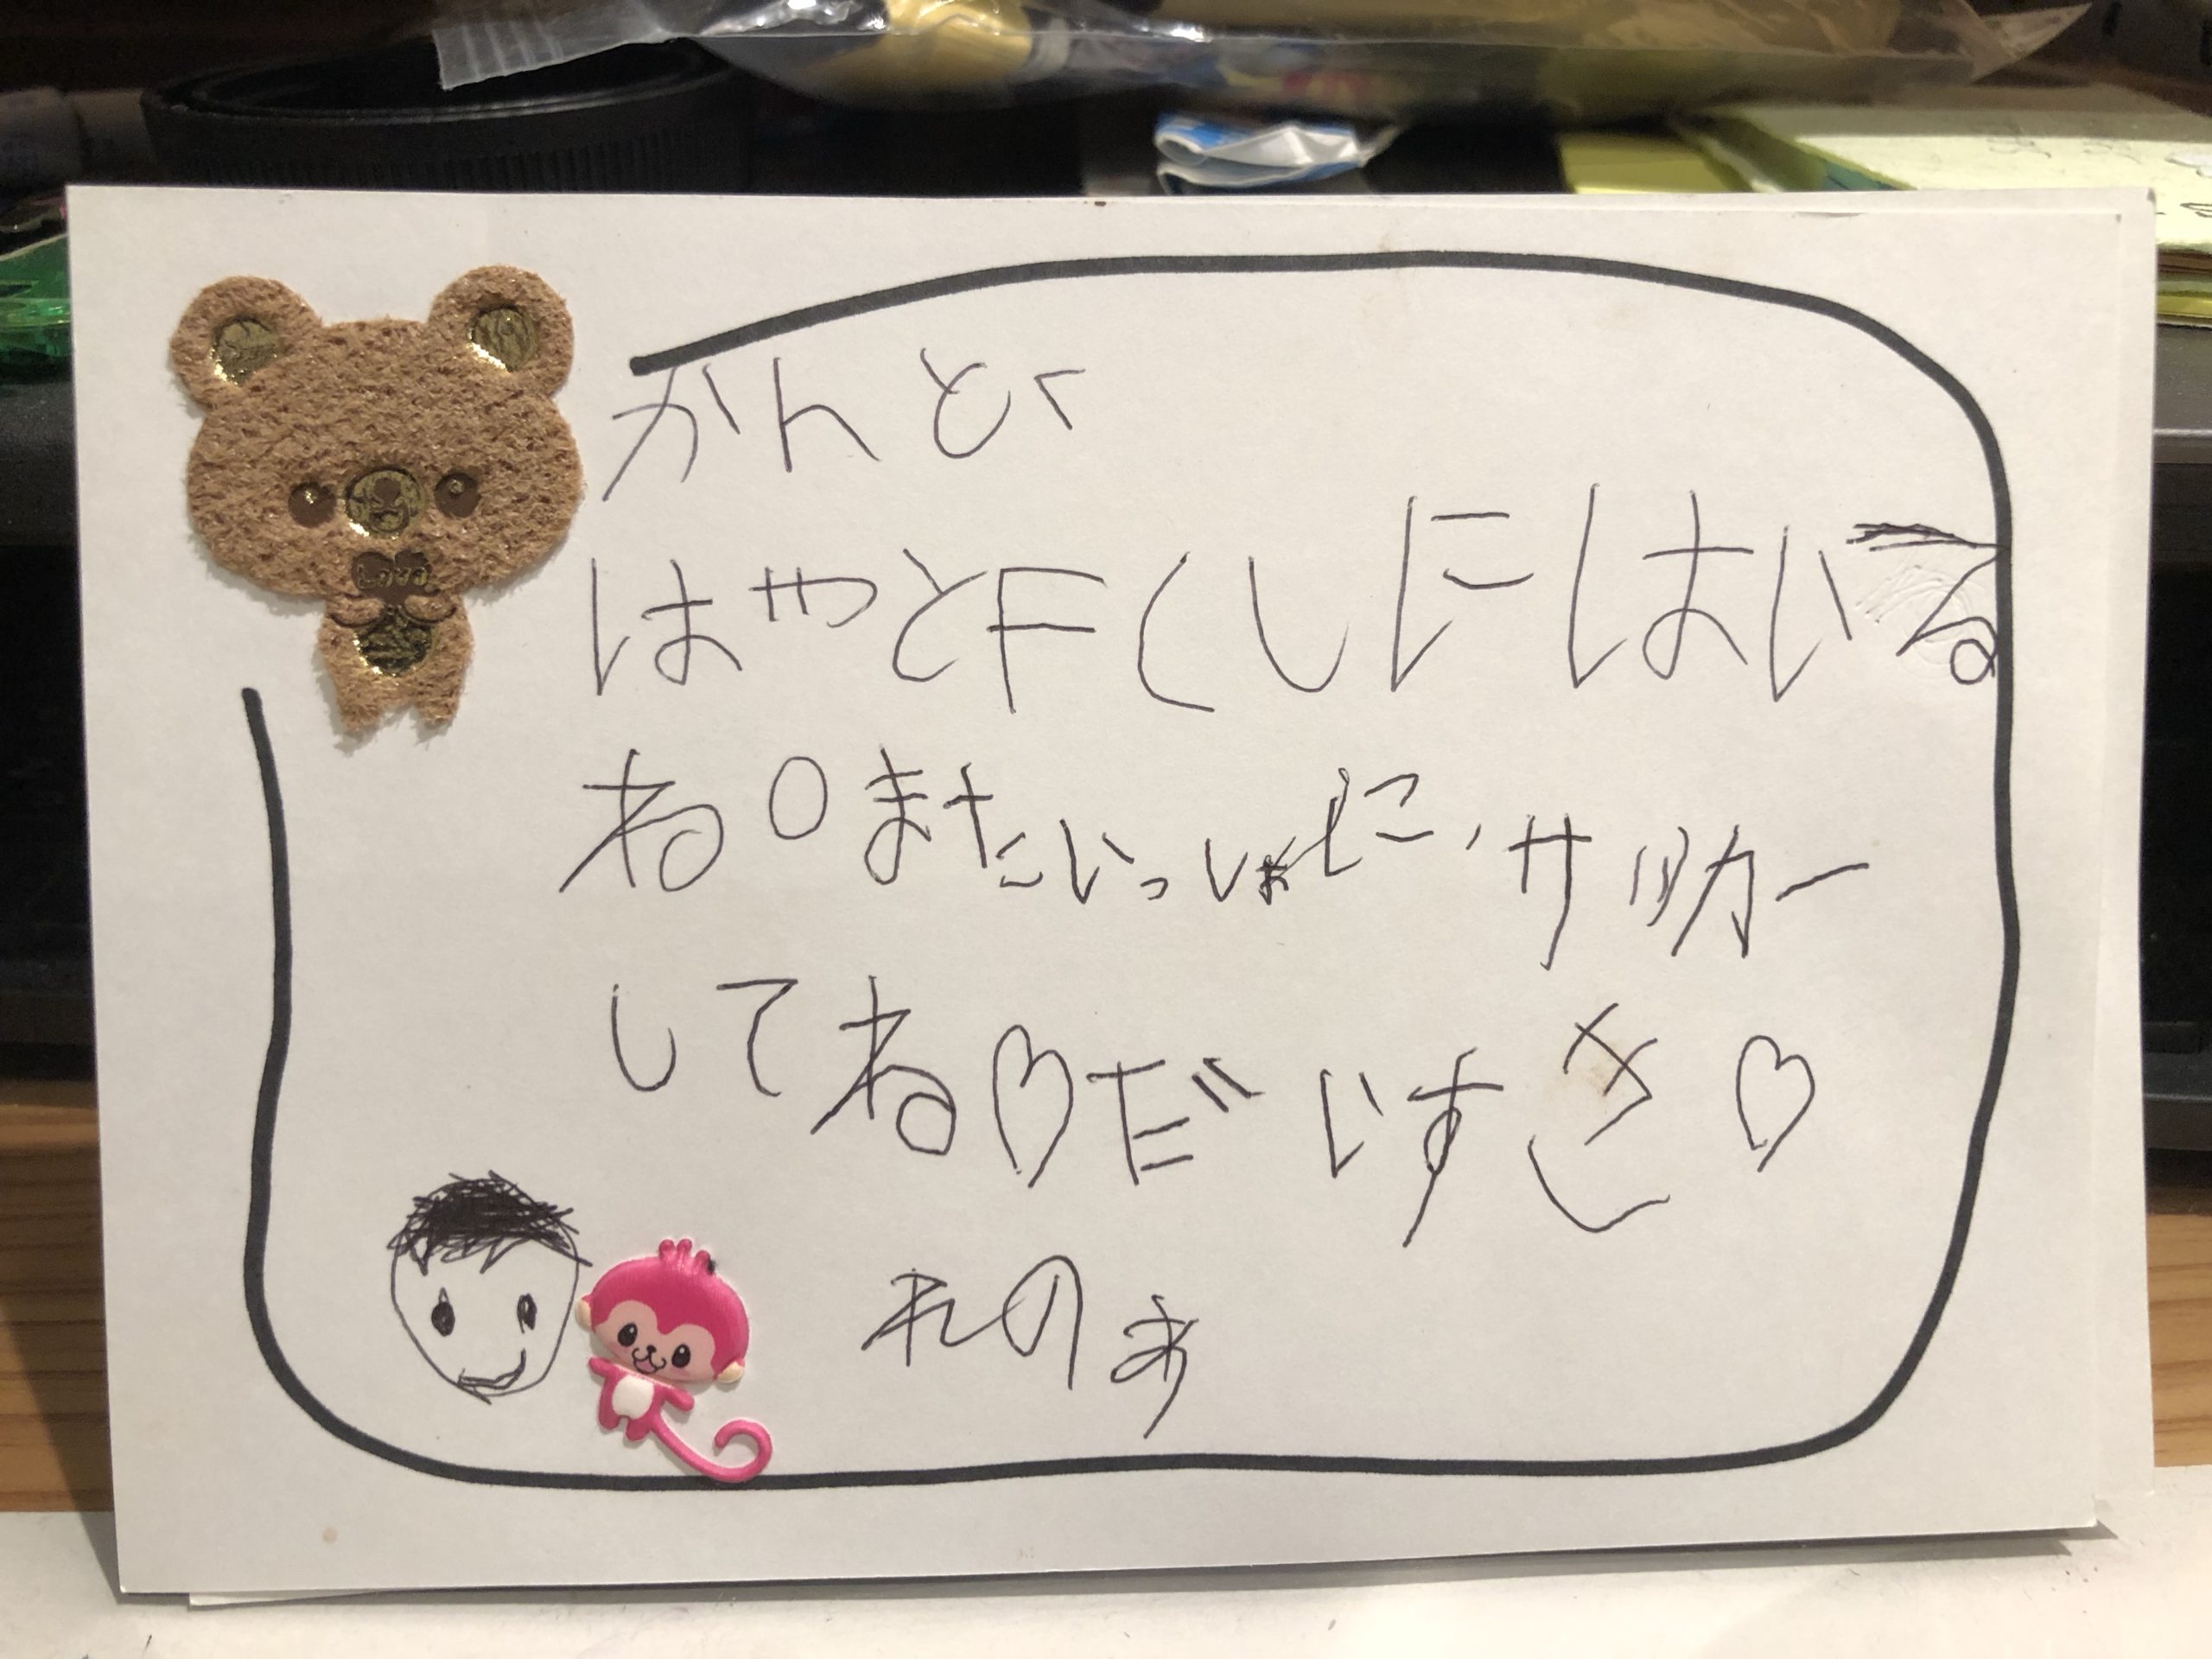 かんとく
はやとFCUにはいる
ね。またいっしょに、サッカー
してね♡だいすき♡
れのあ
Love